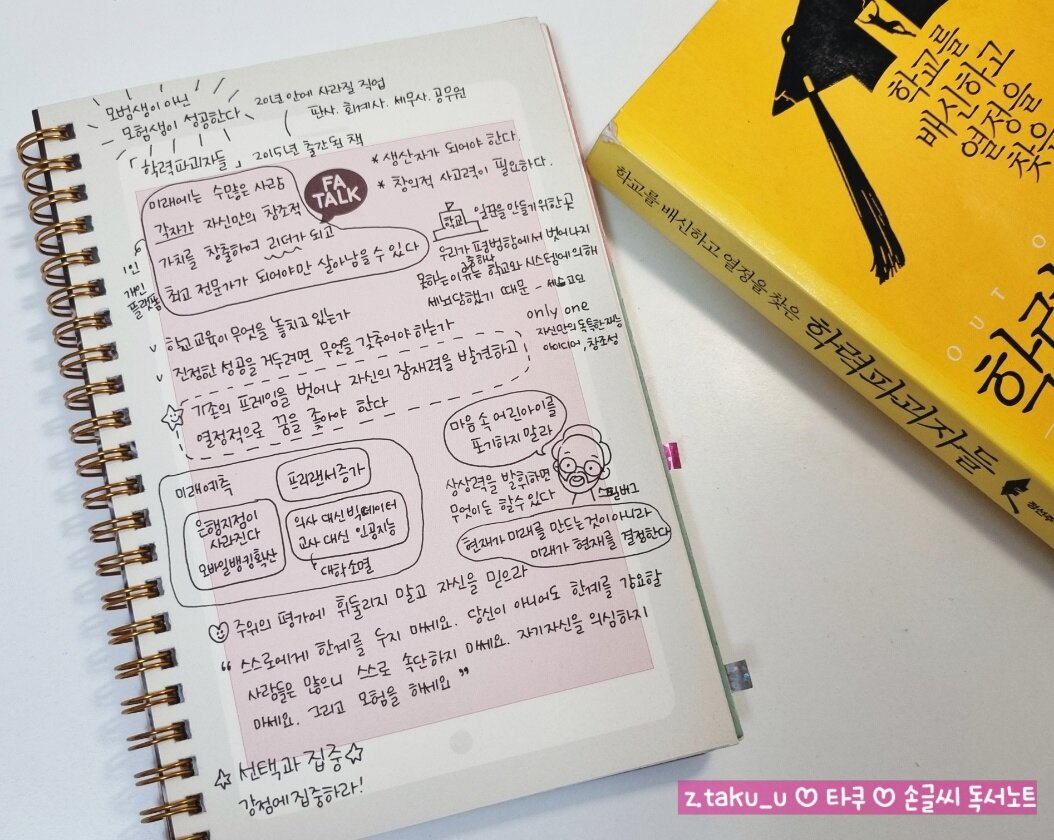 모범생이 아닌
모험생이 성공한다
20년 안에 사라질 직업
판사. 회계사. 세무사. 공무원
「학력파괴자들」 2015년 출간된 책
* 생산자가 되어야 한다.
* 창의적 사고력이 필요하다.
FA
TALK
미래에는 수많은 사람
각자가 자신만의 창조적
가치를 창출하여 리더가 되고
최고 전문가가 되어야만 살아남을 수 있다
1인
개인
플랫폼
학교
일꾼을 만들기 위한 곳
우리가 평범함에서 벗어나지
못하는 이유는 학교와 시스템에 의해
중 하나
세뇌당했기 때문 - 세스고딘
only one
자신만의 독특한 재능
아이디어, 창조성
v 학교교육이 무엇을 놓치고 있는가
v 진정한 성공을 거두려면 무엇을 갖추어야 하는가
☆ 기존의 프레임을 벗어나 자신의 잠재력을 발견하고
열정적으로 꿈을 좇아야 한다
마음 속 어린아이를
포기하지 말라
상상력을 발휘하면
무엇이든 할 수 있다
스필버그
현재가 미래를 만드는 것이 아니라
미래가 현재를 결정한다
미래예측
프리랜서증가
은행지점이
사라진다
모바일뱅킹확산
의사 대신 빅데이터
교사 대신 인공지능
대학소멸
♡ 주위의 평가에 휘둘리지 말고 자신을 믿으라
“ 스스로에게 한계를 두지 마세요. 당신이 아니어도 한계를 강요할
사람들은 많으니 스스로 속단하지 마세요. 자기자신을 의심하지
마세요. 그리고 모험을 하세요 ”
☆ 선택과 집중 ☆
강점에 집중하라!
학교를
배신하고
열정을
학교를 배신하고 열정을 찾은 학력파괴자들
정선주
O U T O
z.taku_u ♡ 타쿠 ♡ 손글씨 독서노트